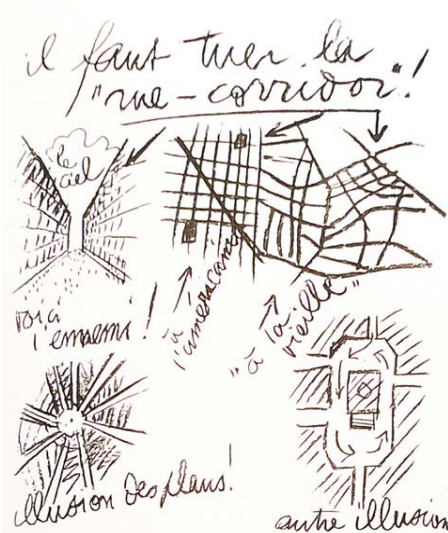 il faut tuer la
"rue-corridor"!
le
ciel
voici
l'ennemi!
à
l'américaine
"à la
vieille"
illusion des plans!
autre illusion